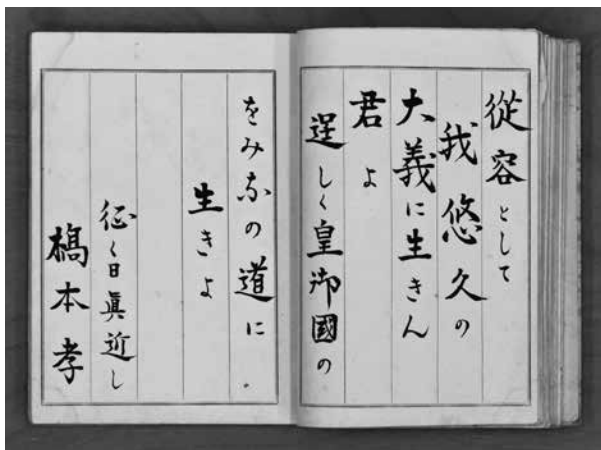 從容として
我悠久の
大義に生きん
君よ
逞しく皇御國の
をみなの道に
生きよ
征く日眞近し
橋本孝